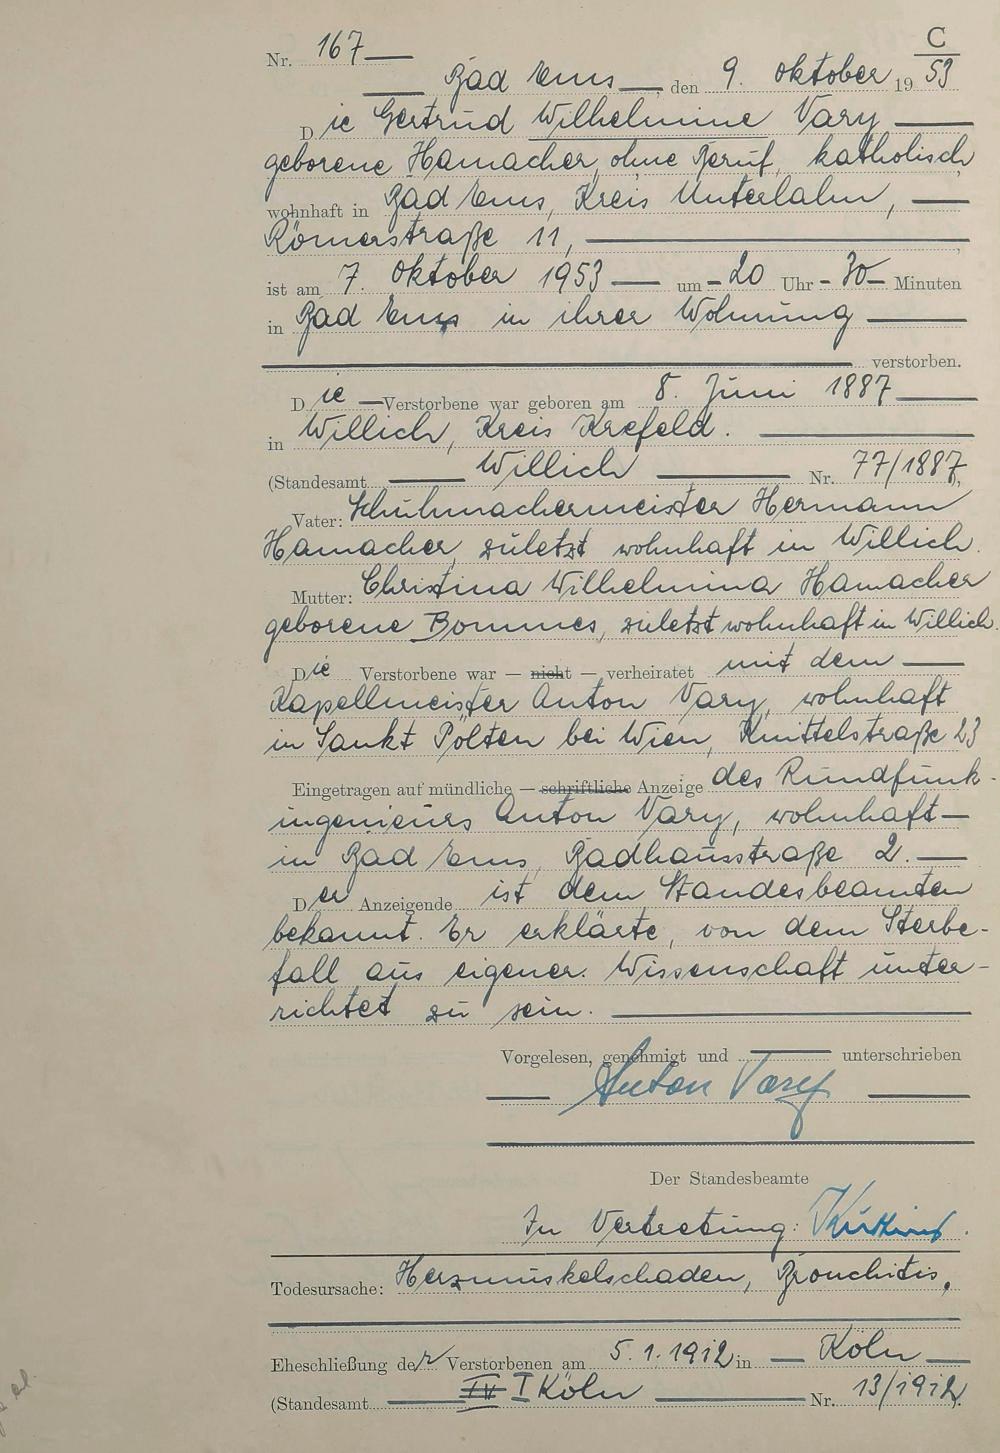 C
Nr. 167
Bad Ems, den 9. Oktober 1953
Die Gertrud Wilhelmine Vary
geborene Hamacher, ohne Beruf, katholisch
wohnhaft in Bad Ems, Kreis Unterlahn,
Römerstraße 11,
ist am 7. Oktober 1953 um 20 Uhr 30 Minuten
in Bad Ems in ihrer Wohnung
verstorben.
Die Verstorbene war geboren am 8. Juni 1887
in Willich, Kreis Krefeld.
(Standesamt Willich Nr. 77/1887)
Vater: Schuhmachermeister Hermann
Hamacher, zuletzt wohnhaft in Willich.
Mutter: Christina Wilhelmina Hamacher
geborene Bommes, zuletzt wohnhaft in Willich.
Die Verstorbene war — nicht — verheiratet mit dem
Kapellmeister Anton Vary, wohnhaft
in Sankt Pölten bei Wien, Knittelstraße 23
Eingetragen auf mündliche — schriftliche Anzeige des Rundfunk-
ingenieurs Anton Vary, wohnhaft
in Bad Ems, Badhausstraße 2.
Der Anzeigende ist dem Standesbeamten
bekannt. Er erklärte, von dem Sterbe-
fall aus eigener Wissenschaft unter-
richtet zu sein.
Vorgelesen, genehmigt und unterschrieben
Anton Vary
Der Standesbeamte
In Vertretung:
Todesursache: Herzmuskelschaden, Bronchitis,
Eheschließung der Verstorbenen am 5.1.1912 in Köln
(Standesamt IV I Köln Nr. 13/1912)